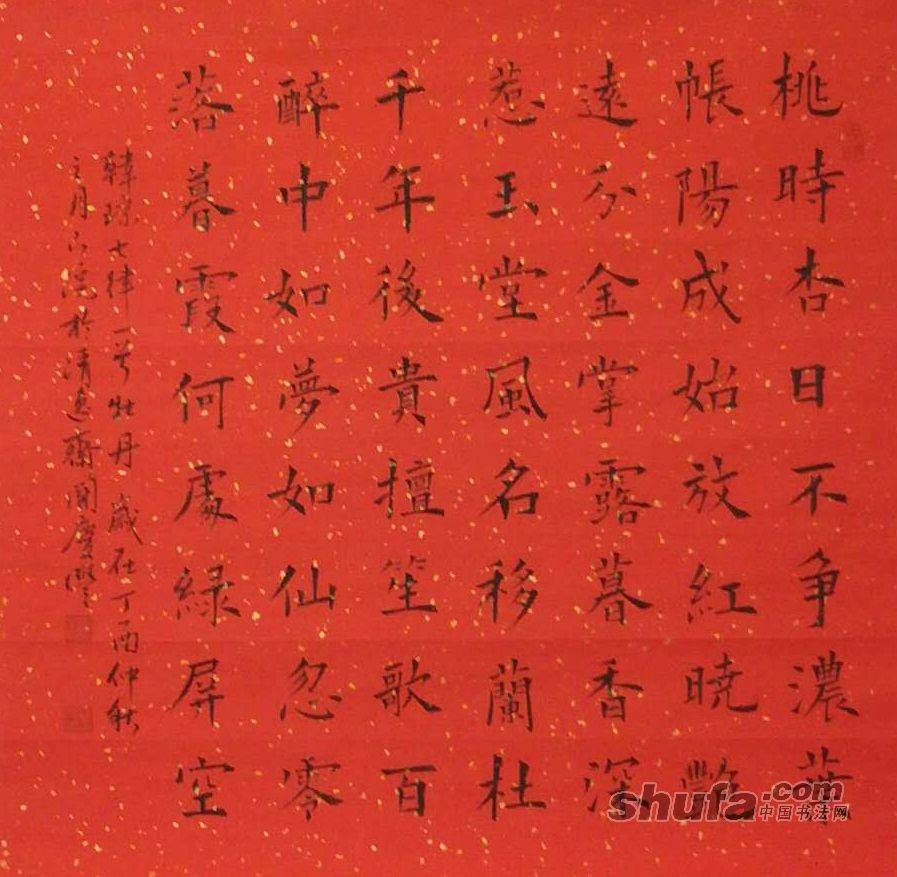 桃時杏日不争濃葉
帳陽成始放紅曉艷
遠分金掌露暮香深
惹玉堂風名移蘭杜
千年後貴擅笙歌百
醉中如夢如仙忽零
落暮霞何處緑屏空
韓琮七律一首牡丹歲在丁酉仲秋
之月 於清 齋 慶
shufa.com
中国书法网